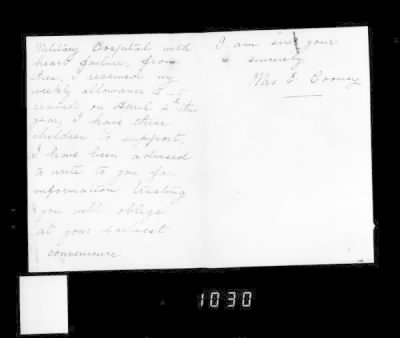 Military Hospital with
heart failure, from
I received my
weekly allowance & it
ceased on April 4th this
year, I have three
children to support,
I have been advised
to write to you for
information trusting
you will oblige
at your earliest
convenience
I am sir your
sincerely
Mrs E. Cooney
1030